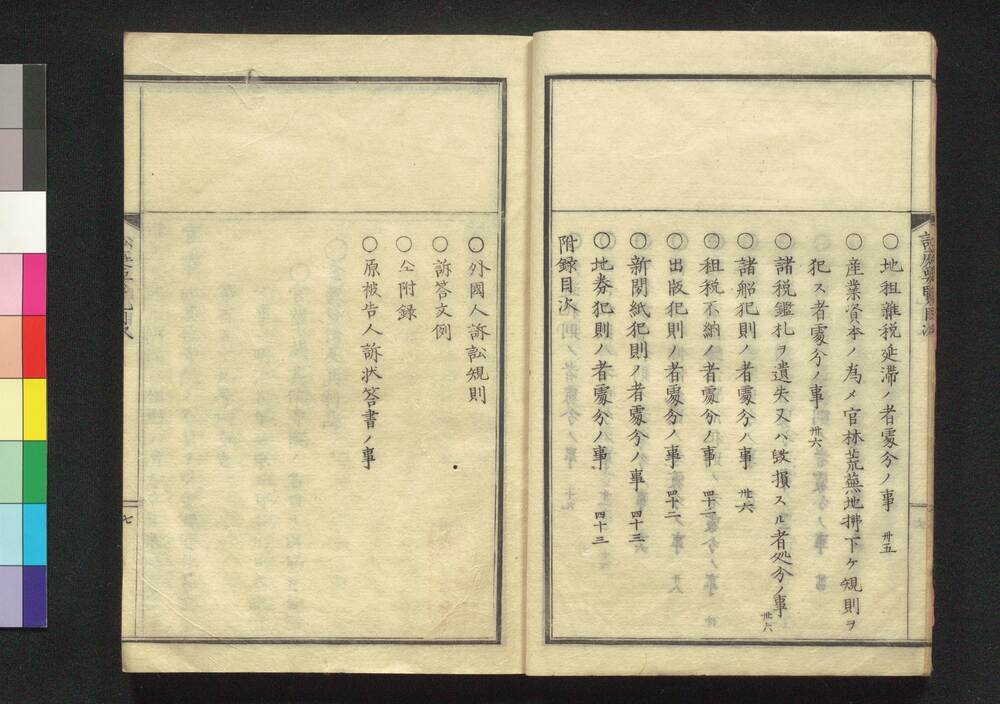 〇地租雜税延滞ノ者處分ノ事 卅五
〇産業資本ノ為メ官林荒蕪地拂下ケ規則ヲ
犯ス者處分ノ事 卅六
〇諸税鑑札ヲ遺失又ハ毀損スル者処分ノ事 卅六
〇諸船犯則ノ者處分ノ事 卅六
〇租税不納ノ者處分ノ事 四十一
〇出版犯則ノ者處分ノ事 四十二
〇新聞紙犯則ノ者處分ノ事 四十三
〇地券犯則ノ者處分ノ事 四十三
附録目次
〇外國人訴訟規則
〇訴答文例
〇仝附録
〇原被告人訴状答書ノ事
七